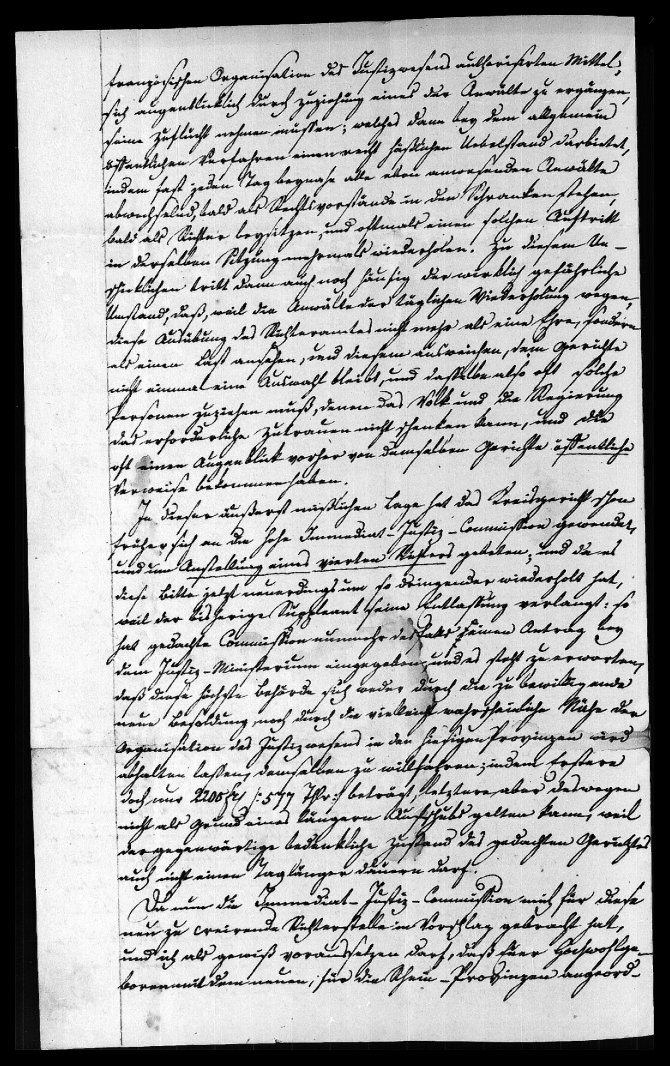 französischen Organisation des Justizwesens authorisirten Mittel,
sich augenblicklich durch Zuziehung eines der Anwälte zu ergänzen,
seine Zuflucht nehmen müssen; welches dann bey dem allgemein
öffentlichen Verfahren einen recht häßlichen Uebelstand darbietet,
indem fast jeden Tag beynahe alle eben anwesenden Anwälte
abwechselnd, bald als Rechtsvorstände in den Schranken stehen,
bald als Richter beysitzen, und oftmals einen solchen Auftritt
in derselben Sitzung mehrmals wiederholen. Zu diesem Un-
schicklichen tritt dann auch noch häufig der wirklich gefährliche
Umstand, daß, weil die Anwälte der täglichen Wiederholung wegen,
diese Ausübung des Richteramtes nicht mehr als eine Ehre, sondern
als einen Last ansehen, und diesem ausweichen, dem Gerichte
nicht einmal eine Auswahl bleibt, und dasselbe also oft solche
Personen zuziehen muß, denen das Volk und die Regierung
das erforderliche Zutrauen nicht schenken kann, und die
oft einen Augenblick vorher von demselben Gerichte öffentliche
Verweise bekommen haben.
In dieser äußerst mißlichen Lage hat das Kreisgericht schon
früher sich an die hohe Immediat-Justiz-Commission gewendet,
und um Anstellung eines vierten Richters gebeten; und da es
diese Bitte jetzt neuerdings um so dringender wiederholt hat,
weil der bisherige Suppleant seine Entlassung verlangt: so
hat gedachte Commission nunmehr deshalb einen Antrag bey
dem Justiz-Ministerium eingegeben, und es steht zu erwarten,
daß diese höchste Behörde sich weder durch die zu bewilligende
neue Besoldung, noch durch die vielleicht wahrscheinliche Nähe der
Organisation des Justizwesens in den hiesigen Provinzen wird
abhalten lassen, demselben zu willfahren; indem Erstere
doch nur 2208 fr /: 577 Thlr :/ beträgt, Letztere aber deswegen
nicht als Grund eines längern Aufschubs gelten kann, weil
der gegenwärtige bedenkliche Zustand des gedachten Gerichtes
auch nicht einen Tag länger dauern darf.
Da nun die Immediat-Justiz-Commission mich für diese
neu zu creirende Richterstelle in Vorschlag gebracht hat,
und ich als gewiß voraussetzen darf, daß Euer Hochwohlge-
boren mit den neuen, für die Rhein-Provinzen angeord-